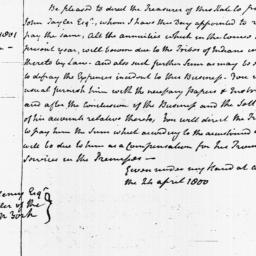 Be pleased to direct the Treasurer of this State to p
John Tayler Esqr, whom I have this Day appointed to r
pay the same, All the annuities which in the course
present year, will become due to the Tribes of Indians
thereto by Law. And also such further Sum as may be
to defray the Expences incident to this Business. You
usual furnish him with the necessary papers &
and after the conclusion of the Business and the
of his accounts relative thereto, You will direct the
to pay him the Sum which according to the accustomed
will be due to him as a Compensation for his
services in the Premises—
Given under my Hand at
the 24 april 1800
Henry Esqr
of the
York